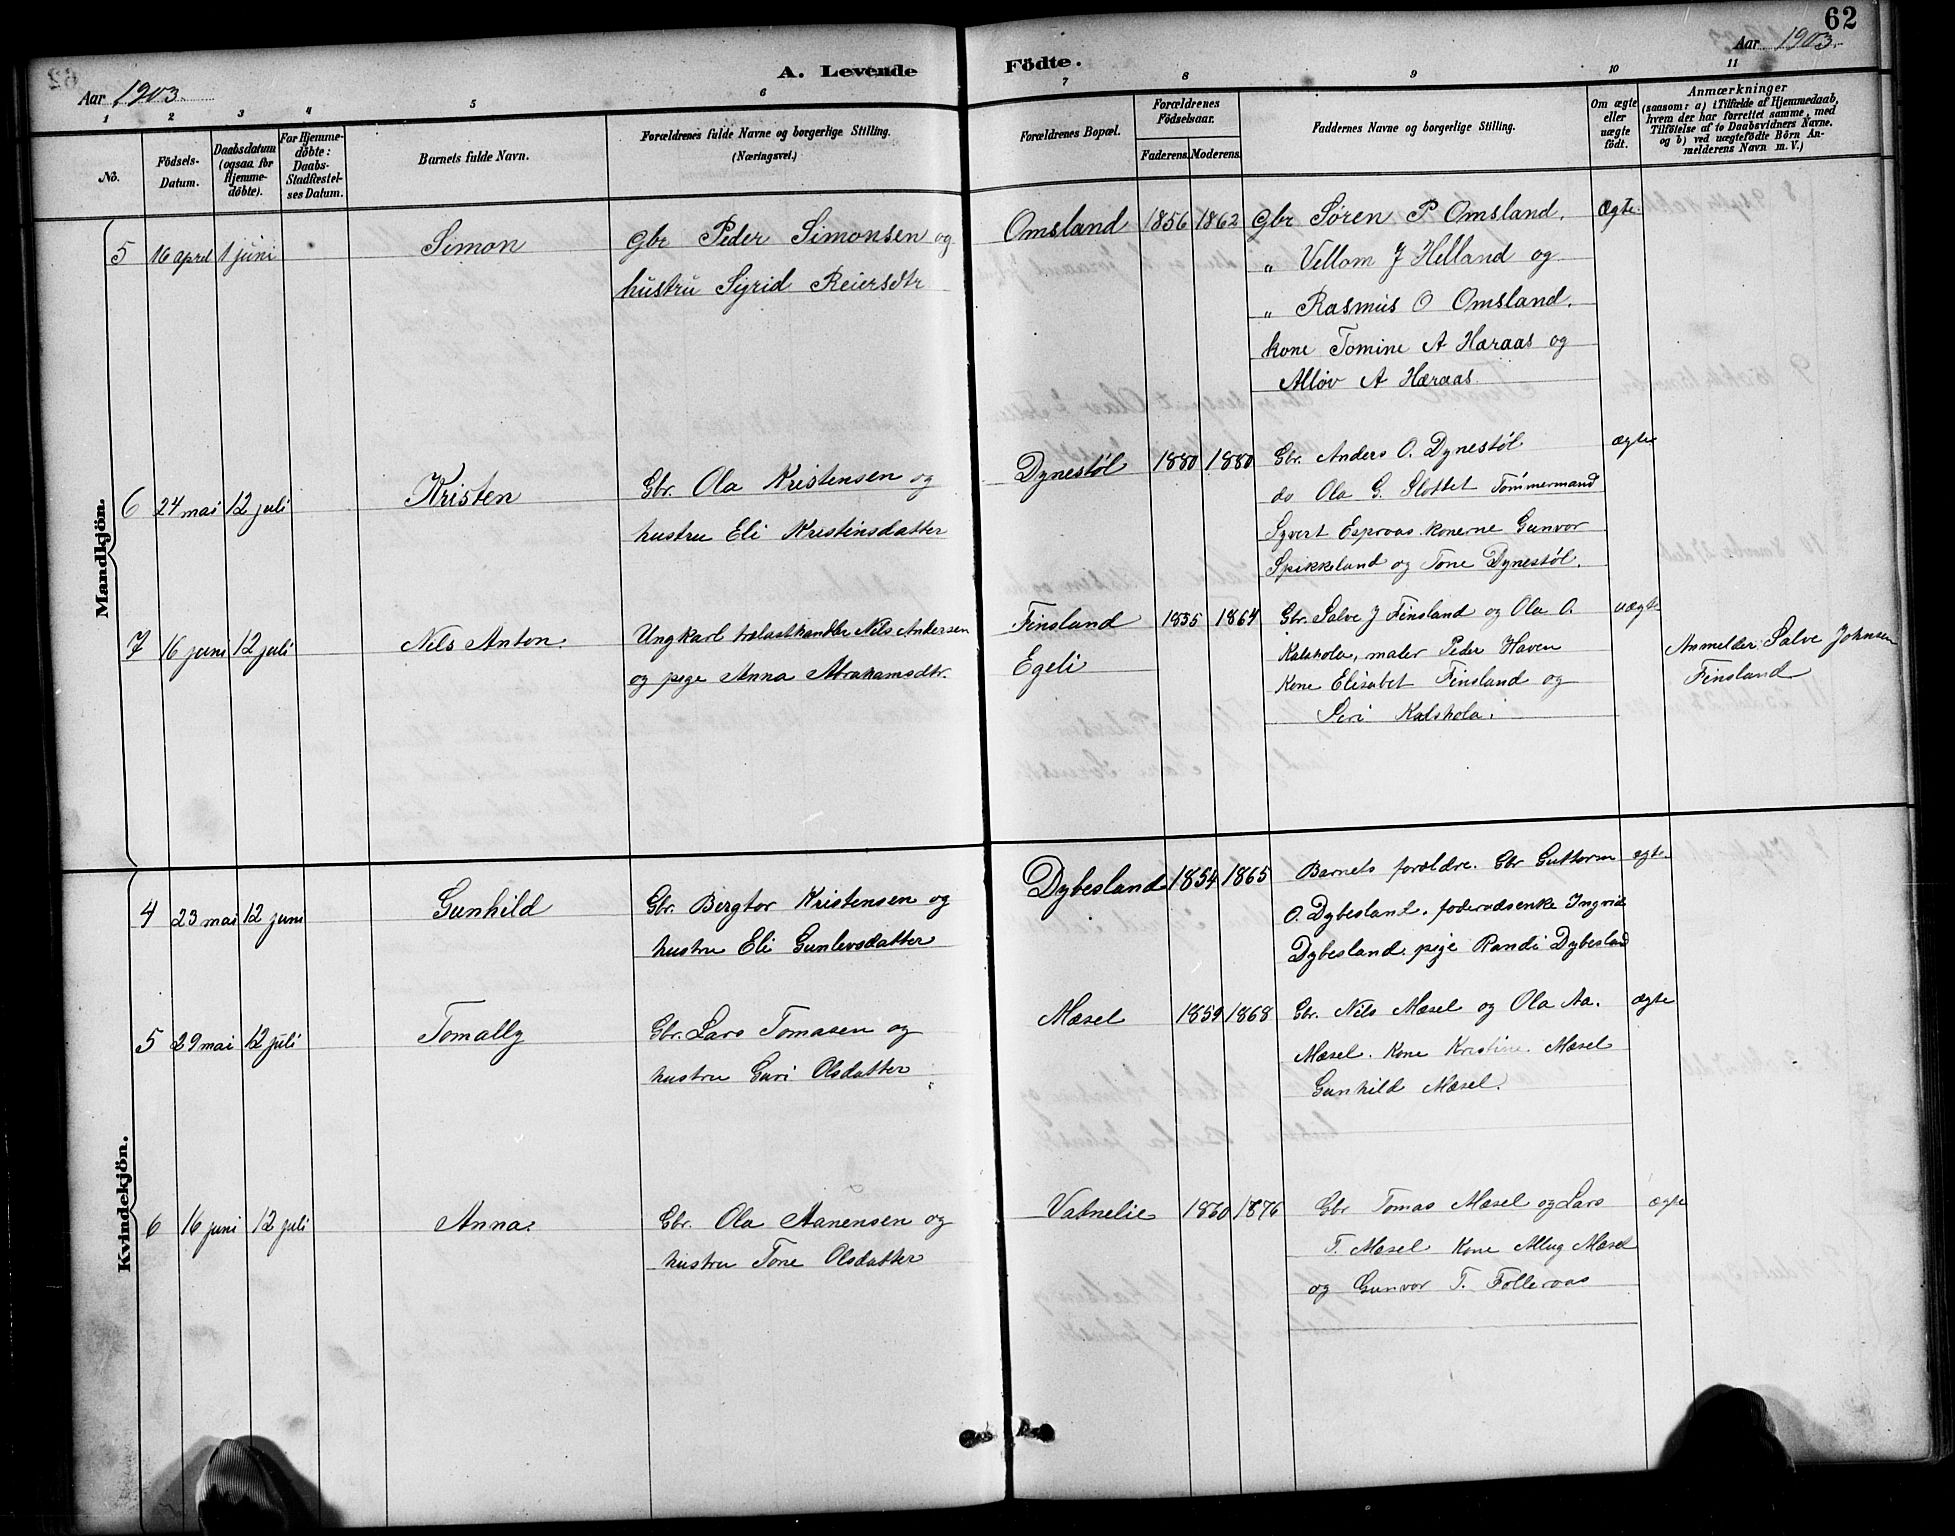 62
Aar 1903.
A. Levende Födte.
Aar 1903.
1 2 3 4 5 6 7 8 9 10 11
No.
Födsels-Datum.
Daabsdatum (ogsaa for Hjemmedöbte).
For Hjemmedöbte: Daabs-Stadfestelses Datum.
Barnets fulde Navn.
Forældrenes fulde Navne og borgerlige Stilling.
(Næringsvei.)
Forældrenes Bopæl.
Forældrenes Födselsaar.
Faderens. Moderens.
Faddernes Navne og borgerlige Stilling.
Om ægte eller uægte födt.
Anmærkninger
(saasom: a) i Tilfælde af Hjemmedaab, hvem der har forrettet samme, med Tilföielse af to Daabsvidners Navne. og b) ved uægtefödte Börn Anmelderens Navn m. V.)
Mandkjön.
5 16 april 1 juni Simon Gbr Peder Simonsen og Omsland 1856 1862 Gbr Søren P Omsland. Ægte.
hustru Sigrid Reiersdtr
„ Vellom J Helland og
„ Rasmus O Omsland.
kone Tomine A Hæraas og
Alløv A Hæraas.
6 24 mai 12 juli Kristen Gbr. Ola Kristensen og Dynestøl 1880 1880 Gbr. Anders O. Dynestøl ægte
hustru Eli Kristinsdatter
do Ola G. Slottet Tømmermand
Syvert Espraas konerne Gunvor
Spikkeland og Tone Dynestøl.
7 16 juni 12 juli Nils Anton. Ungkarl trælasthandler Nils Andersen Finsland 1835 1864 Gbr. Salve J Finsland og Ola O. uægte
og pige Anna Abrahamsdtr. Egeli
Kalshola, maler Peder Haven
Kone Elisabet Finsland og
Siri Kalshola.
Anmelder Salve Johnsen
Finsland
Kvindekjön.
4 23 mai 12 juni Gunhild Gbr. Bergtor Kristensen og Dybesland 1854 1865 Barnets forældre. Gbr Guttorm ægte
hustru Eli Gunlevsdatter
O. Dybesland. foderaadsenke Ingrid
Dybesland. pige Randi Dybesland
5 29 mai 12 juli Tomally Gbr. Lars Tomasen og Mæsel 1859 1868 Gbr. Nils Mæsel og Ola Aa. ægte
hustru Guri Olsdatter
Mæsel. Kone Kristine Mæsel
Gunhild Mæsel.
6 16 juni 12 juli Anna. Gbr. Ola Aanensen og Vatnelie 1860 1876 Gbr Tomas Mæsel og Lars ægte
hustru Tone Olsdatter
T. Mæsel Kone Allug Mæsel
og Gunvor T. Folleraas